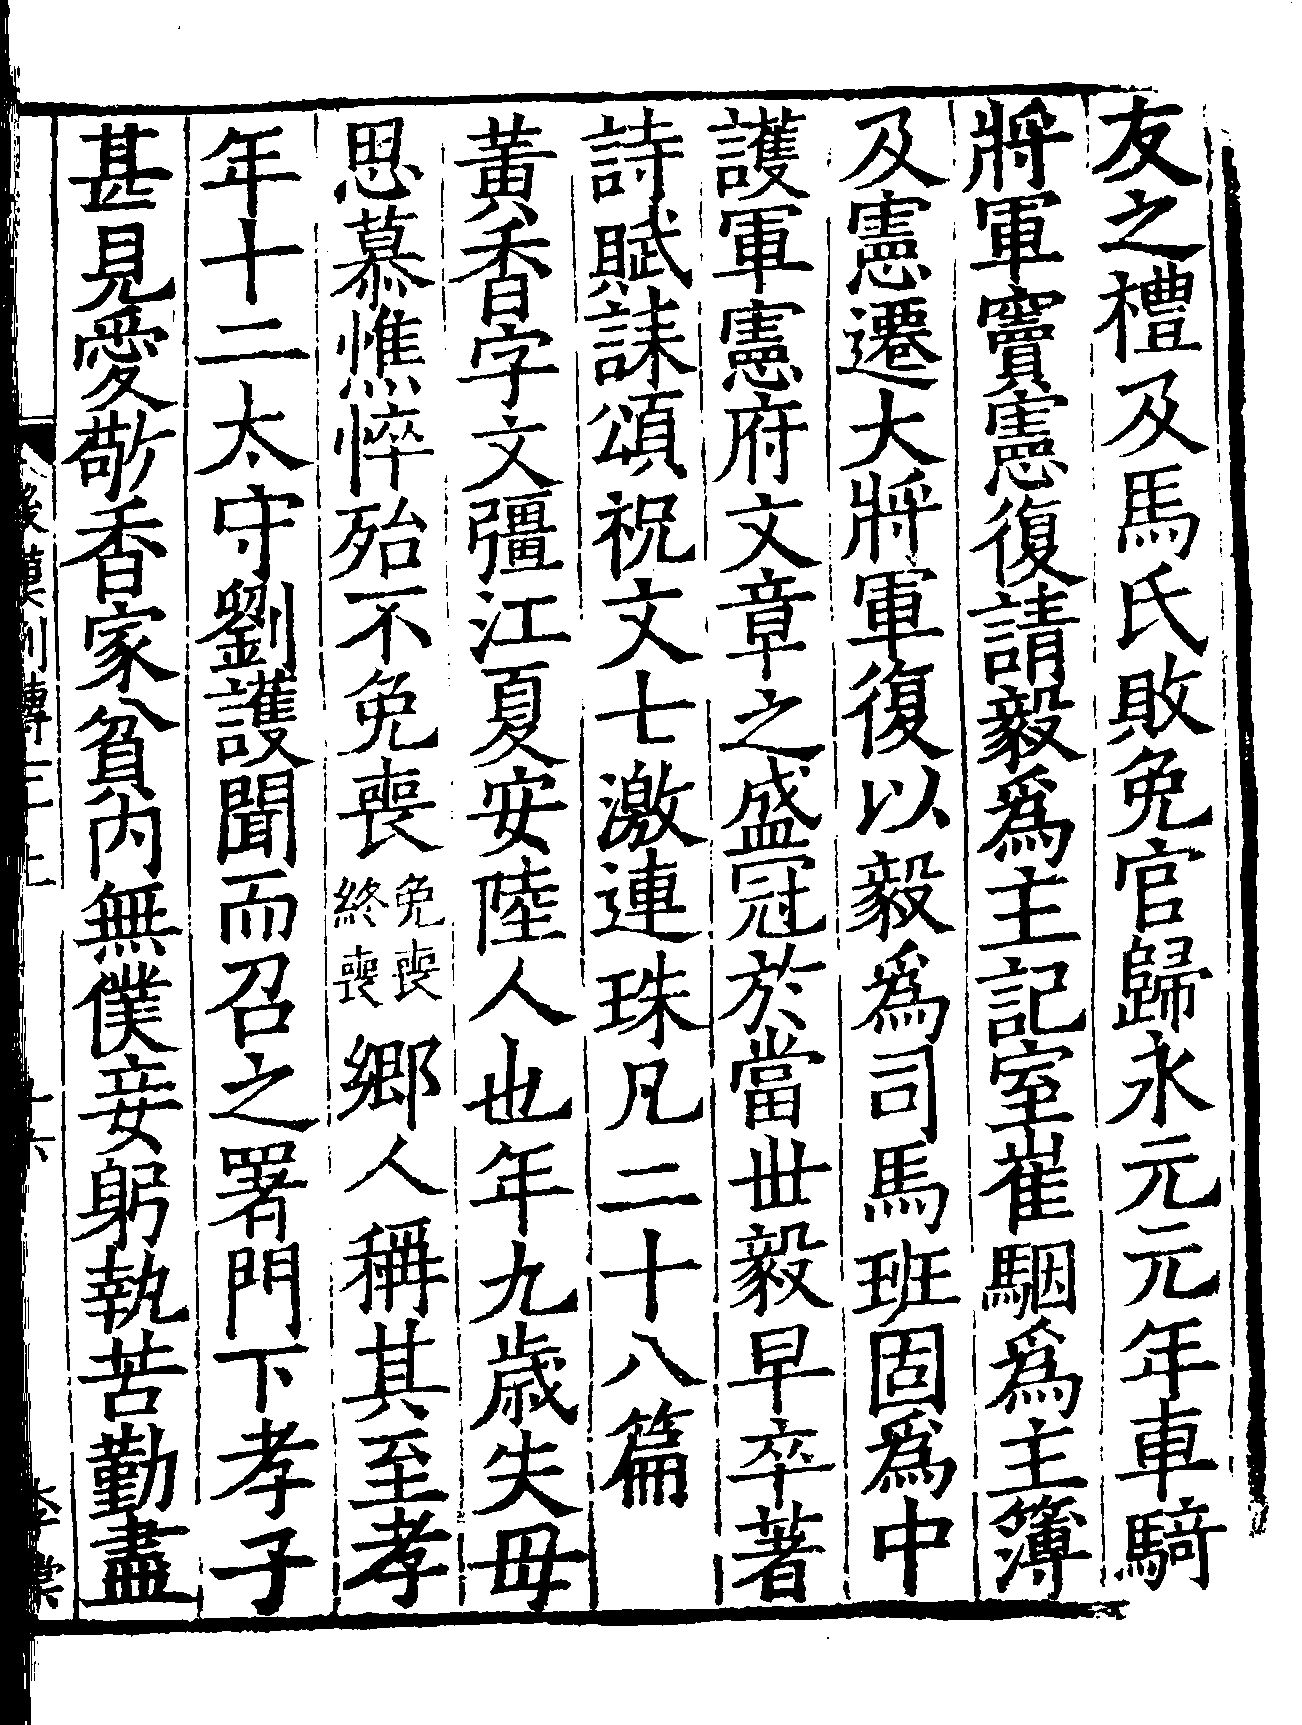 友之禮及馬氏敗免官歸永元元年車騎
將軍竇憲復請毅爲主記室崔駰爲主簿
及憲遷大將軍復以毅爲司馬班固爲中
護軍憲府文章之盛冠於當世毅早卒著
詩賦誄頌祝文七激連珠凡二十八篇
黃香字文彊江夏安陸人也年九歲失母
思慕憔悴殆不免喪免喪終喪鄉人稱其至孝
年十二太守劉護聞而召之署門下孝子
甚見愛敬香家貧內無僕妾躬執苦勤盡